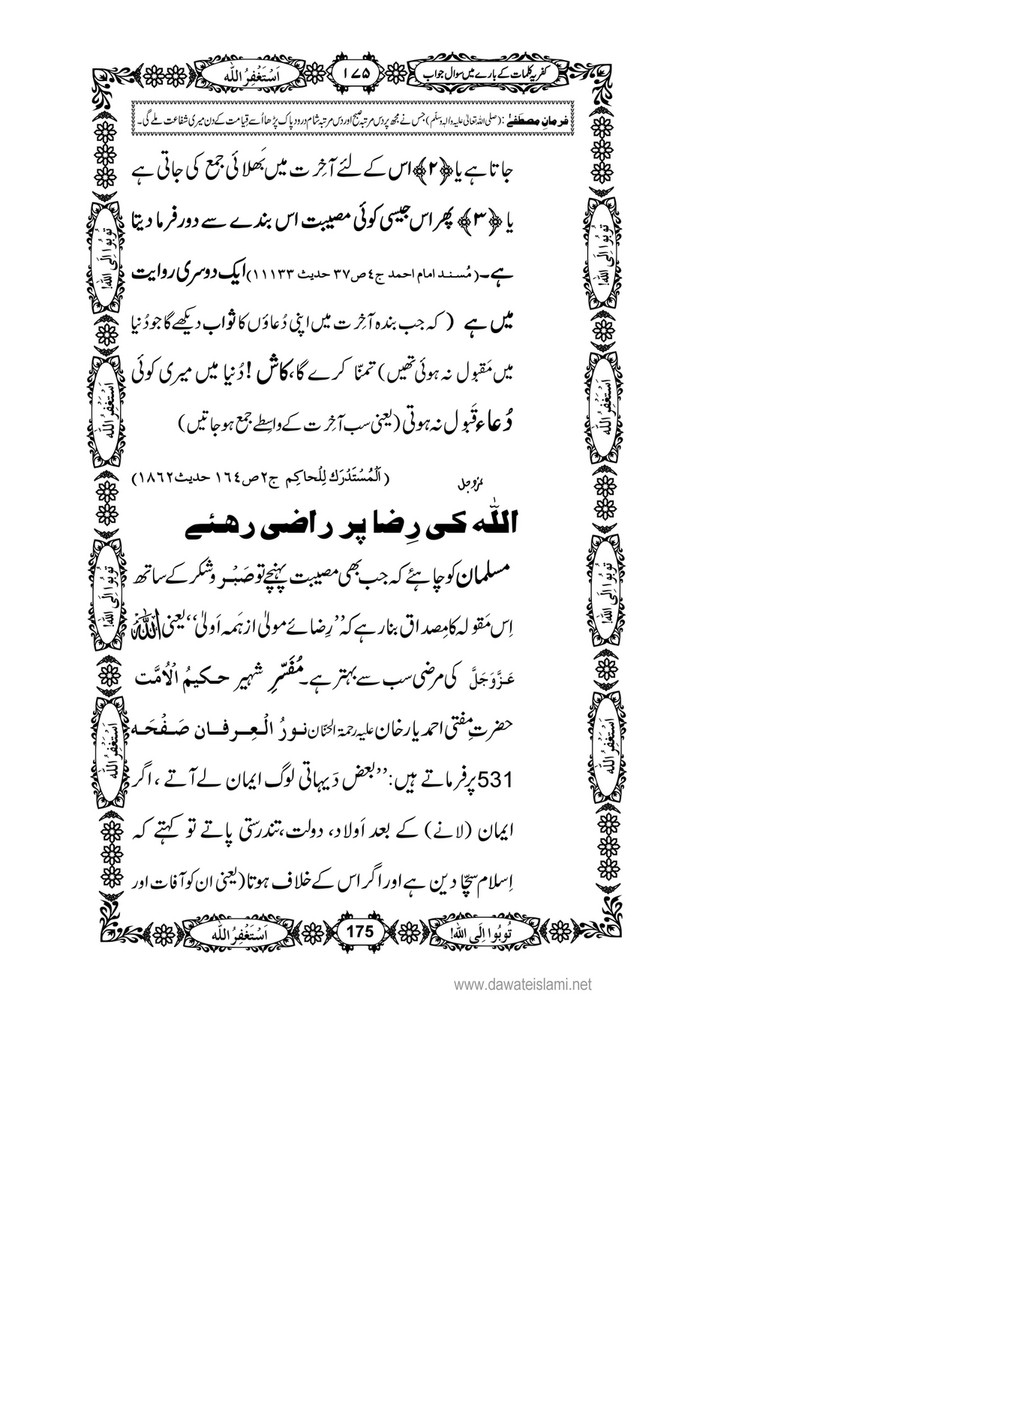 کفریہ کلمات کے بارے میں سوال جواب ۱۷۵ اَسْتَغْفِرُ اللّٰه
فرمانِ مصطفےٰ: (صلی اللہ تعالیٰ علیہ والہٖ وسلّم) جس نے مجھ پر دس مرتبہ صبح اور دس مرتبہ شام درود پاک پڑھا اُسے قیامت کے دن میری شفاعت ملے گی۔
جاتا ہے یا ﴿۲﴾ اس کے لئے آخِرت میں بَھلائی جمع کی جاتی ہے
یا ﴿۳﴾ پھر اس جیسی کوئی مصیبت اس بندے سے دور فرما دیتا
ہے۔ (مُسند امام احمد ج٤ ص۳۷ حدیث ۱۱۱۳۳) ایک دوسری روایت
میں ہے ( کہ جب بندہ آخِرت میں اپنی دُعاؤں کا ثواب دیکھے گا جو دُنیا
میں مَقبول نہ ہوئی تھیں) تمنّا کرے گا، کاش! دُنیا میں میری کوئی
دُعاء قَبول نہ ہوتی (یعنی سب آخِرت کے واسِطے جمع ہو جاتیں)
(اَلْمُسْتَدْرَك لِلْحاكِم ج۲ ص۱٦٤ حدیث ۱۸٦۲)
اللّٰہ عزوجل کی رِضا پر راضی رھئے
مسلمان کو چاہئے کہ جب بھی مصیبت پہنچے تو صَبْر و شکر کے ساتھ
اِس مَقولہ کا مِصداق بنا رہے کہ ’’رِضائے مولیٰ از ہَمہ اَولیٰ‘‘ یعنی اللہ
عَزَّوَجَلَّ کی مرضی سب سے بہتر ہے۔ مُفَسّرِ شہیر حکیمُ الْاُمَّت
حضرتِ مفتی احمد یار خان علیہ رحمۃ الحنّان نورُ الْعِرفان صَفْحَہ
531 پر فرماتے ہیں: ’’بعض دَیہاتی لوگ ایمان لے آتے ، اگر
ایمان (لانے) کے بعد اَولاد، دولت، تندرستی پاتے تو کہتے کہ
اِسلام سچّا دین ہے اور اگر اس کے خلاف ہوتا (یعنی ان کو آفات اور
تُوبُوا اِلَی اللّٰه!
اَسْتَغْفِرُ اللّٰه
تُوبُوا اِلَی اللّٰه!
اَسْتَغْفِرُ اللّٰه
تُوبُوا اِلَی اللّٰه!
اَسْتَغْفِرُ اللّٰه
تُوبُوا اِلَی اللّٰه!
اَسْتَغْفِرُ اللّٰه
تُوبُوا اِلَی اللّٰه! 175 اَسْتَغْفِرُ اللّٰه
www.dawateislami.net